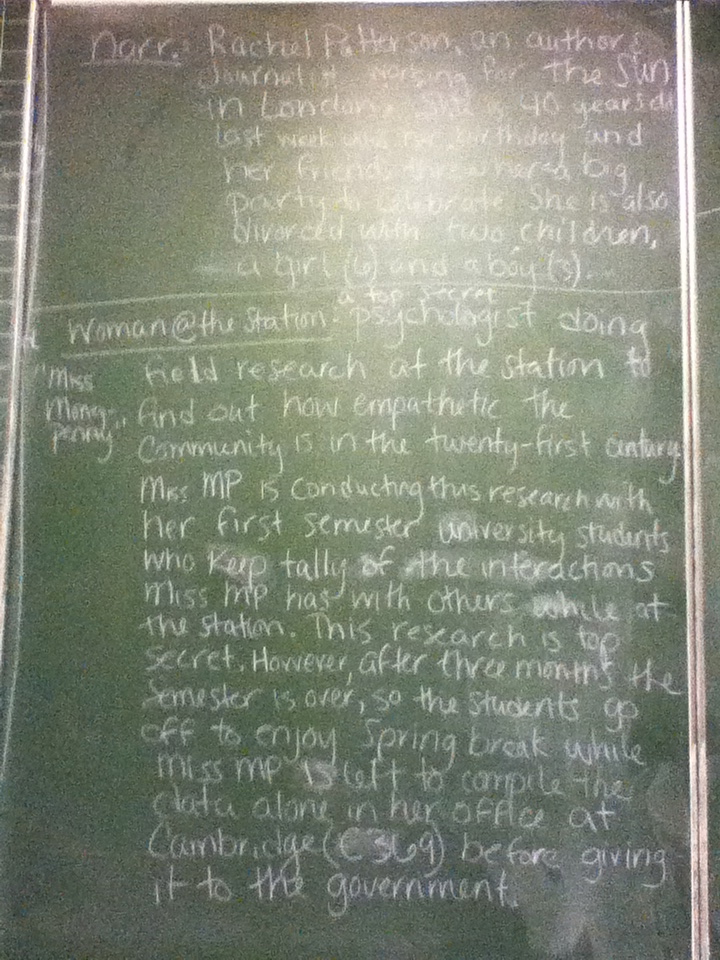 Narr.: Rachel Patterson, an author &
Journalist working for the Sun
in London. She is 40 years old
last week was her birthday and
her friends threw her a big
party to celebrate. She is also
divorced with two children,
a girl (6) and a boy (3).
a top secret
Woman@the Station: psychologist doing
"Miss Money-penny" field research at the station to
find out how empathetic the
community is in the twenty-first century
Miss MP is conducting this research with
her first semester university students
who keep tally of the interactions
Miss MP has with others while at
the station. This research is top
secret. However, after three months the
semester is over, so the students go
off to enjoy Spring break while
Miss MP is left to compile the
data alone in her office at
Cambridge (C369) before giving
it to the government.